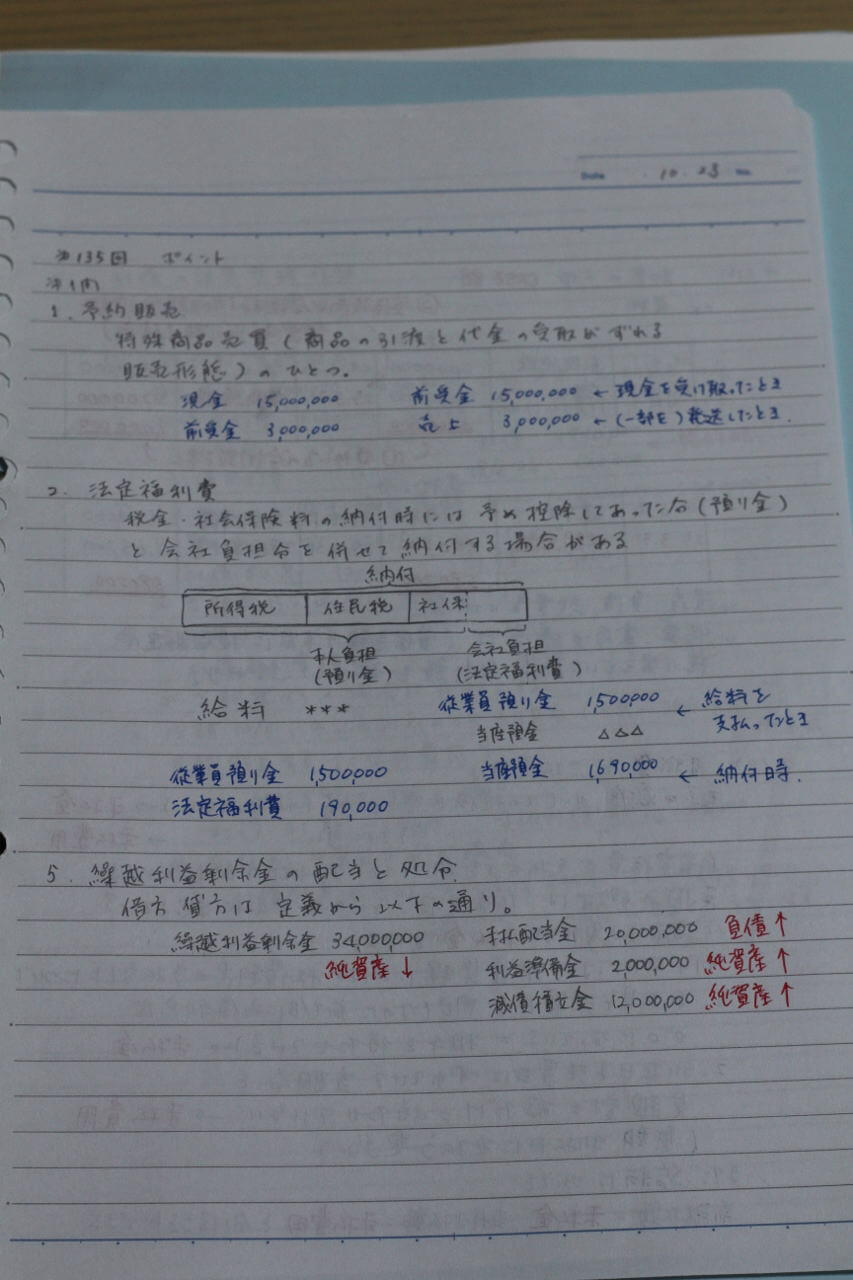 Date 10・23 No.
第135回 ポイント
第1問
1. 予約販売
特殊商品売買(商品の引渡と代金の受取がずれる
販売形態)のひとつ。
現金 15,000,000 前受金 15,000,000 ← 現金を受け取ったとき
前受金 3,000,000 売上 3,000,000 ←(一部を)発送したとき.
2. 法定福利費
税金・社会保険料の納付時には予め控除してあった分(預り金)
と会社負担分を併せて納付する場合がある
納付
所得税 住民税 社保
本人負担 会社負担
(預り金) (法定福利費)
給料 *** 従業員預り金 1,500,000 ← 給料を
当座預金 △△△ 支払ったとき
従業員預り金 1,500,000 当座預金 1,690,000 ← 納付時.
法定福利費 190,000
5. 繰越利益剰余金の配当と処分
借方貸方は定義から以下の通り。
繰越利益剰余金 34,000,000 未払配当金 20,000,000 負債↑
純資産↓ 利益準備金 2,000,000 純資産↑
減債積立金 12,000,000 純資産↑